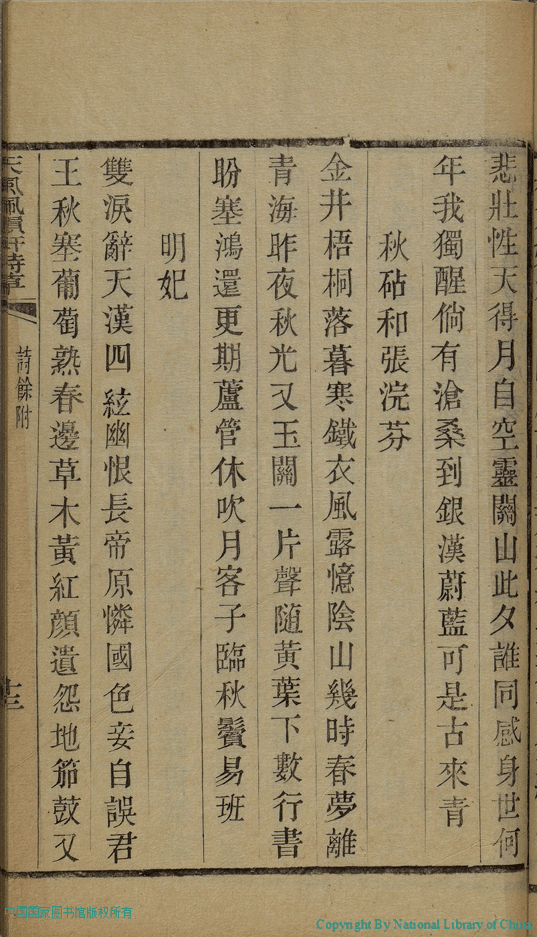 悲壯性天得月自空靈關山此夕誰同感身世何
年我獨醒倘有滄桑到銀漢蔚藍可是古來青
秋砧和張浣芬
金井梧桐落暮寒鐵衣風露憶陰山幾時春夢離
青海昨夜秋光又玉關一片聲随黃葉下數行書
盼塞鴻還更期蘆管休吹月客子臨秋鬢易班
明妃
雙淚辭天漢四絃幽恨長帝原憐國色妾自誤君
王秋塞葡萄熟春邊草木黃紅顏遺怨地笳鼓又
詩餘附
十三
中国国家图书馆版权所有
Copyright By National Library of China